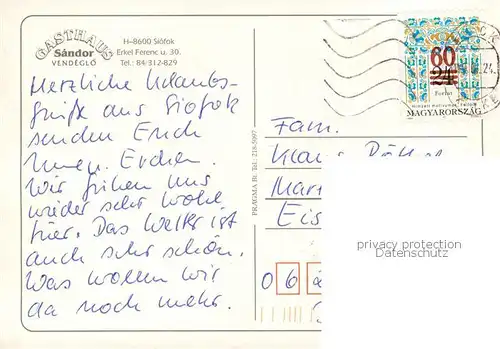 GASTHAUS
Sándor
VENDÉGLŐ
H-8600 Siófok
Erkel Ferenc u. 30.
Tel.: 84/312-829
Herzliche Urlaubs-
grüße aus Siofok
senden Euch
Wir fühlen uns
wieder sehr wohl
hier. Das Wetter ist
auch sehr schön.
Was wollen wir
da noch mehr.
PRAGMA Bt. Tel.: 218-5097
60
24
Forint
MAGYARORSZÁG
Fam.
Klaus
Eis
privacy protection
Datenschutz
0 6